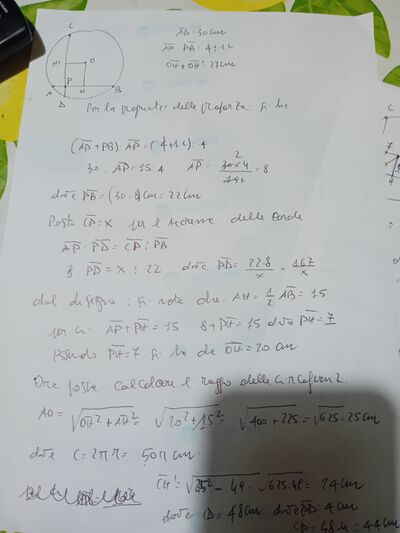 C
AB = 30 cm
AP : PB = 4 : 11
OH + OH' = 27 cm
H' O
A P H B
D
Per la proprietà delle proporz. si ha
(AP + PB) : AP = (4+11) : 4
30 : AP = 15 : 4 AP = 30×4 = 8
dove PB = (30-8) cm = 22 cm
Posto CP = x per il teorema delle corde
AP : PD = CP : PB
8 : PD = x : 22 dove PD = 22·8 / x = 167 / x
dal disegno si nota che AH = 1/2 AB = 15
per cui AP + PH = 15 8 + PH = 15 dove PH = 7
essendo PH = 7 si ha che OH = 20 cm
Ora posso calcolare il raggio della circonferenz.
AO = √OH² + AH² = √20² + 15² = √400 + 225 = √625 = 25 cm
dove C = 2πr = 50π cm
CH' = √25² - 49 = √625-49 = 24 cm
dove CD = 48 cm dove PD = 4 cm
CP = 48-4 = 44 cm